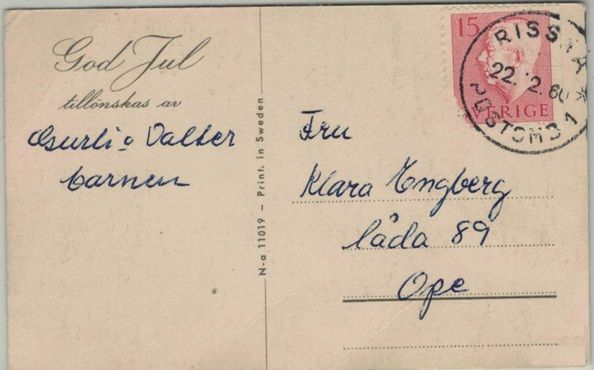 God Jul
tillönskas av
Gurli o Valter
barnen
N-a 11019 – Print. in Sweden
15
SVERIGE
22. 2. 60
Fru
Klara Engberg
låda 89
Ope